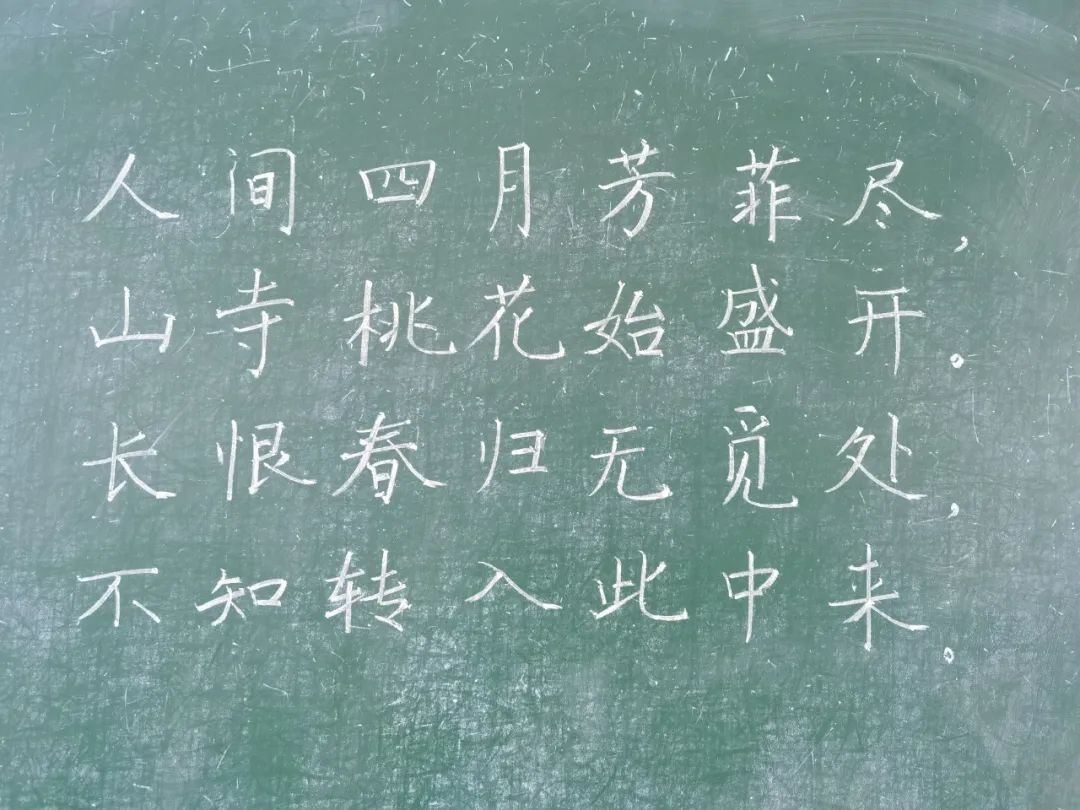 人间四月芳菲尽，
山寺桃花始盛开。
长恨春归无觅处，
不知转入此中来。